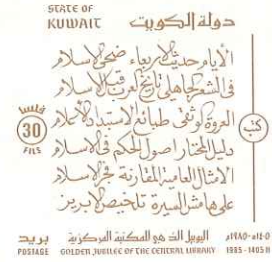 STATE OF
KUWAIT
دولة الكويت
الأيام حديث الاربعاء ضحى الاسلام
في الشعر الجاهلي تاريخ العرب قبل الاسلام
العروة الوثقى طبائع الاستبداد الاعلام
دليل المحتار اصول الحكم في الاسلام
الامثال العامية المقارنة فجر الاسلام
على هامش السيرة تلخيص الابريز
فلسا
30
FILS
كتب
بريد
POSTAGE
اليوبيل الذهبي للمكتبة المركزية
GOLDEN JUBILEE OF THE CENTRAL LIBRARY
١٤٠٥هـ-١٩٨٥م
1985 - 1405 H